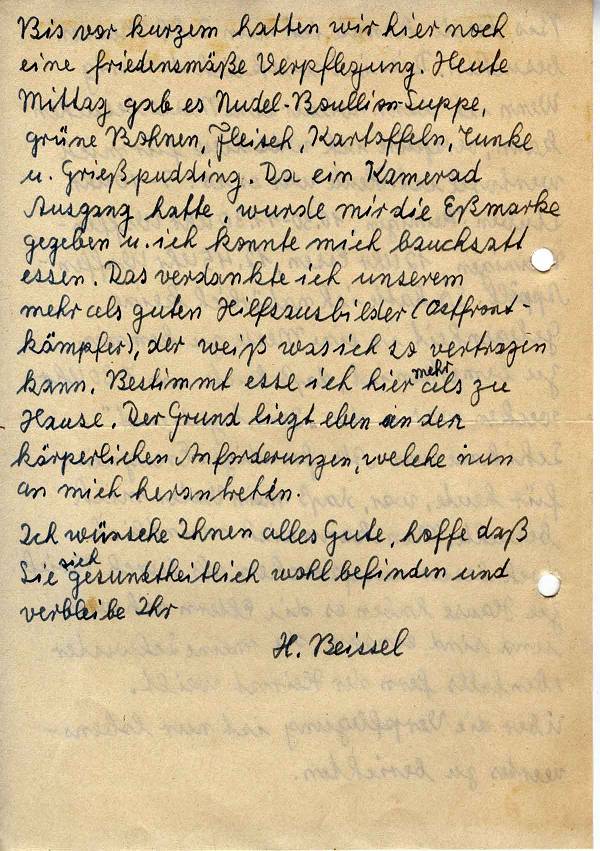 Bis vor kurzem hatten wir hier noch
eine friedensmäße Verpflegung. Heute
Mittag gab es Nudel-Boullion-Suppe,
grüne Bohnen, Fleisch, Kartoffeln, Tunke
u. Grießpudding. Da ein Kamerad
Ausgang hatte, wurde mir die Eßmarke
gegeben u. ich konnte mich bauchsatt
essen. Das verdankte ich unserem
mehr als guten Hilfsausbilder (Ostfront-
kämpfer), der weiß was ich so vertragen
kann. Bestimmt esse ich hier mehr als zu
Hause. Der Grund liegt eben in den
körperlichen Anforderungen, welche nun
an mich herantreten.
Ich wünsche Ihnen alles Gute, hoffe daß
Sie sich gesundtheitlich wohl befinden und
verbleibe Ihr
H. Beissel